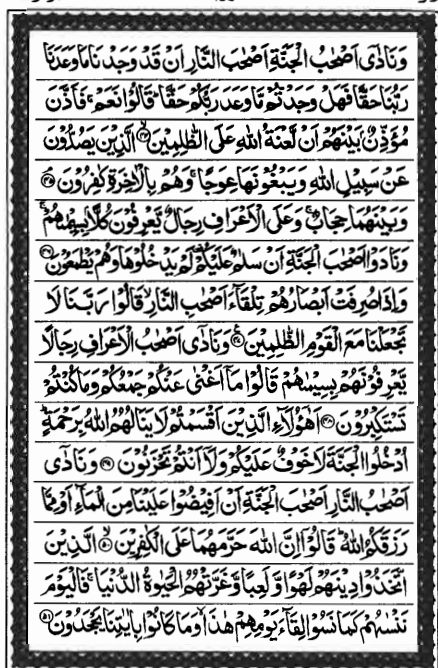 وَنَادٰۤى اَصْحٰبُ الْجَنَّةِ اَصْحٰبَ النَّارِ اَنْ قَدْ وَجَدْنَا مَا وَعَدَنَا
رَبُّنَا حَقًّا فَهَلْ وَجَدْتُّمْ مَّا وَعَدَ رَبُّكُمْ حَقًّا ؕ قَالُوْا نَعَمْ ۚ فَاَذَّنَ
مُؤَذِّنٌۢ بَيْنَهُمْ اَنْ لَّعْنَةُ اللّٰهِ عَلَى الظّٰلِمِيْنَ ۙ﴿۴۴﴾ الَّذِيْنَ يَصُدُّوْنَ
عَنْ سَبِيْلِ اللّٰهِ وَيَبْغُوْنَهَا عِوَجًا ۚ وَهُمْ بِالْاٰخِرَةِ كٰفِرُوْنَ ۘ﴿۴۵﴾
وَبَيْنَهُمَا حِجَابٌ ۚ وَعَلَى الْاَعْرَافِ رِجَالٌ يَّعْرِفُوْنَ كُلًّاۢ بِسِيْمٰىهُمْ ۚ
وَنَادَوْا اَصْحٰبَ الْجَنَّةِ اَنْ سَلٰمٌ عَلَيْكُمْ ۫ لَمْ يَدْخُلُوْهَا وَهُمْ يَطْمَعُوْنَ ﴿۴۶﴾
وَاِذَا صُرِفَتْ اَبْصَارُهُمْ تِلْقَآءَ اَصْحٰبِ النَّارِ ۙ قَالُوْا رَبَّنَا لَا
تَجْعَلْنَا مَعَ الْقَوْمِ الظّٰلِمِيْنَ ﴿۴۷﴾ وَنَادٰۤى اَصْحٰبُ الْاَعْرَافِ رِجَالًا
يَّعْرِفُوْنَهُمْ بِسِيْمٰىهُمْ قَالُوْا مَاۤ اَغْنٰى عَنْكُمْ جَمْعُكُمْ وَمَا كُنْتُمْ
تَسْتَكْبِرُوْنَ ﴿۴۸﴾ اَهٰۤؤُلَآءِ الَّذِيْنَ اَقْسَمْتُمْ لَا يَنَالُهُمُ اللّٰهُ بِرَحْمَةٍ ؕ
اُدْخُلُوا الْجَنَّةَ لَا خَوْفٌ عَلَيْكُمْ وَلَاۤ اَنْتُمْ تَحْزَنُوْنَ ﴿۴۹﴾ وَنَادٰۤى
اَصْحٰبُ النَّارِ اَصْحٰبَ الْجَنَّةِ اَنْ اَفِيْضُوْا عَلَيْنَا مِنَ الْمَآءِ اَوْ مِمَّا
رَزَقَكُمُ اللّٰهُ ؕ قَالُوْۤا اِنَّ اللّٰهَ حَرَّمَهُمَا عَلَى الْكٰفِرِيْنَ ۙ﴿۵۰﴾ الَّذِيْنَ
اتَّخَذُوْا دِيْنَهُمْ لَهْوًا وَّلَعِبًا وَّغَرَّتْهُمُ الْحَيٰوةُ الدُّنْيَا ۚ فَالْيَوْمَ
نَنْسٰىهُمْ كَمَا نَسُوْا لِقَآءَ يَوْمِهِمْ هٰذَا ۙ وَمَا كَانُوْا بِاٰيٰتِنَا يَجْحَدُوْنَ ﴿۵۱﴾